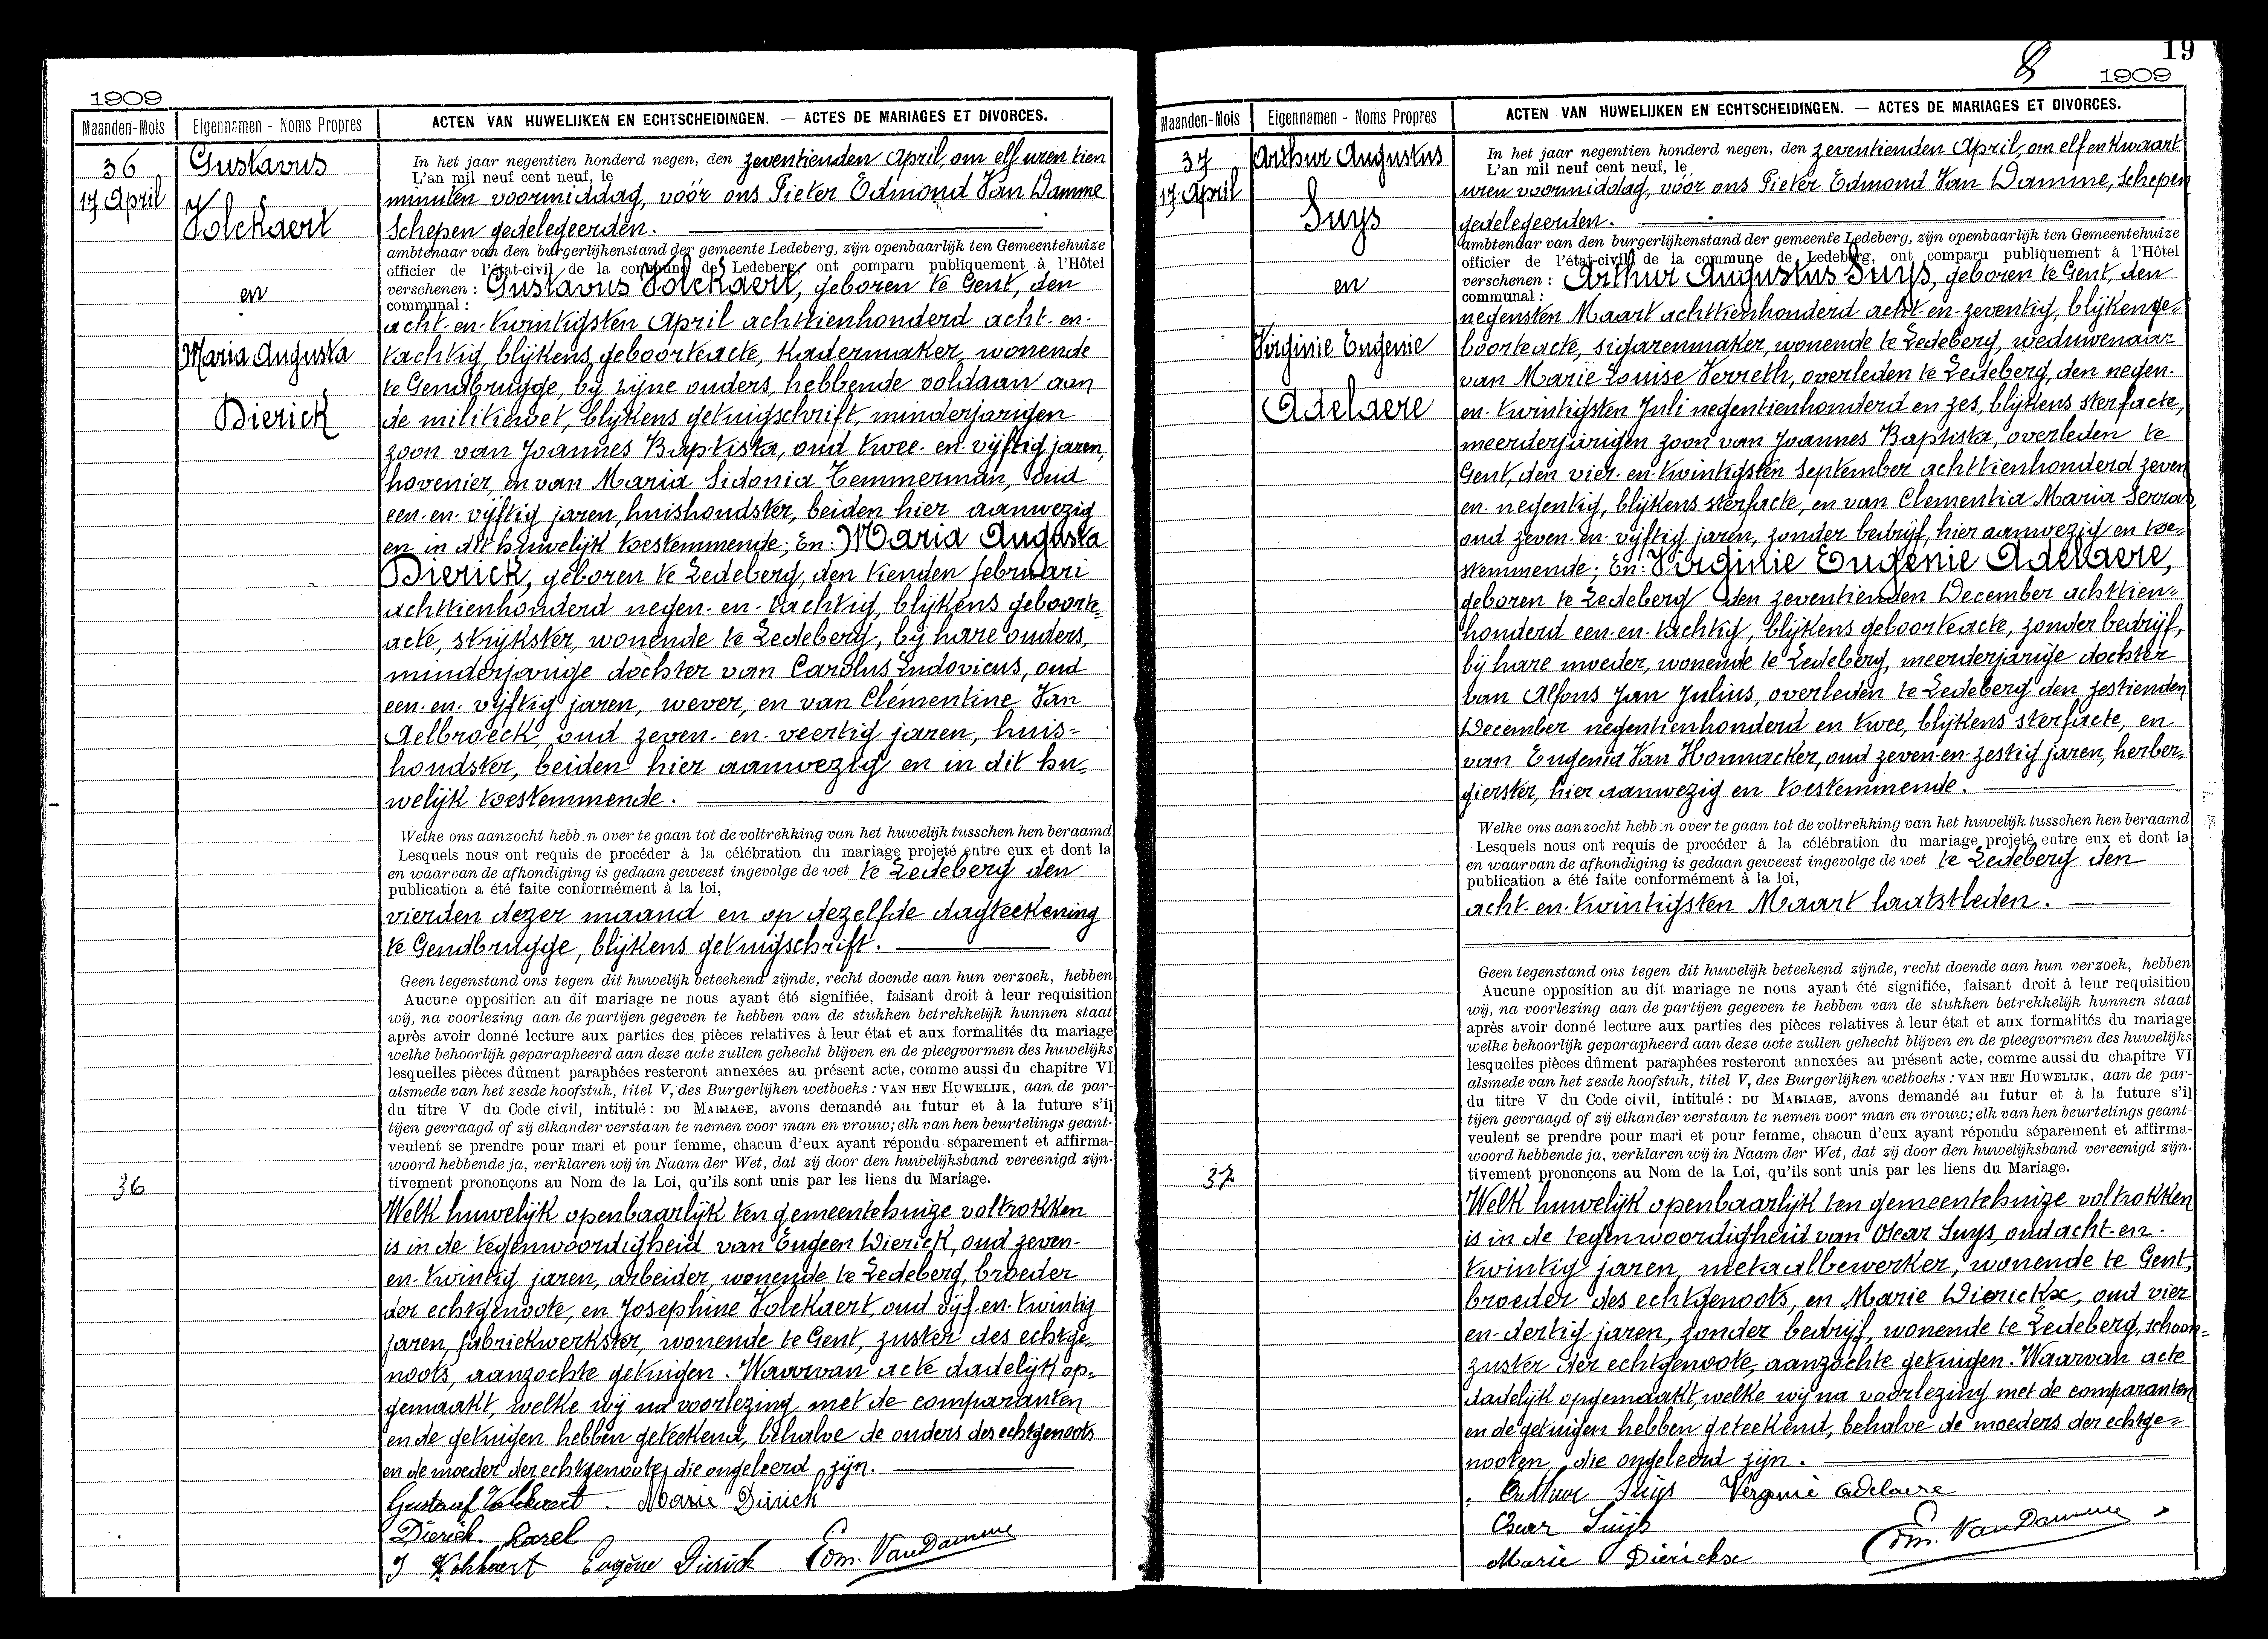 1909
Maanden-Mois
Eigennamen - Noms Propres
ACTEN VAN HUWELIJKEN EN ECHTSCHEIDINGEN. — ACTES DE MARIAGES ET DIVORCES.
36
17 April
Gustavus
Volckaert
en
Maria Augusta
Dierick
In het jaar negentien honderd negen, den zeventienden April, om elf uren tien
L'an mil neuf cent neuf, le
minuten voormiddag, vóór ons Pieter Edmond Van Damme
Schepen gedelegeerden.
ambtenaar van den burgerlijkenstand der gemeente Ledeberg, zijn openbaarlijk ten Gemeentehuize
officier de l'état-civil de la commune de Ledeberg, ont comparu publiquement à l'Hôtel
verschenen : Gustavus Volckaert, geboren te Gent, den
communal :
acht-en-twintigsten April achttienhonderd acht-en-
tachtig, blijkens geboorteacte, kadermaker, wonende
te Gendbrugge, bij zijne ouders, hebbende voldaan aan
de militiewet, blijkens getuigschrift, minderjarigen
zoon van Joannes Baptista, oud twee-en-vijftig jaren,
hovenier, en van Maria Sidonia Temmerman, oud
een-en-vijftig jaren, huishoudster, beiden hier aanwezig
en in dit huwelijk toestemmende; En: Maria Augusta
Dierick, geboren te Ledeberg, den tienden februari
achttienhonderd negen-en-tachtig, blijkens geboorte=
acte, strijkster, wonende te Ledeberg, bij hare ouders,
minderjarige dochter van Carolus Ludovicus, oud
een-en-vijftig jaren, wever, en van Clémentine Van
Aelbroeck, oud zeven-en-veertig jaren, huis=
houdster, beiden hier aanwezig en in dit hu=
welijk toestemmende.
Welke ons aanzocht hebb.n over te gaan tot de voltrekking van het huwelijk tusschen hen beraamd
Lesquels nous ont requis de procéder à la célébration du mariage projeté entre eux et dont la
en waarvan de afkondiging is gedaan geweest ingevolge de wet te Ledeberg den
publication a été faite conformément à la loi,
vierden dezer maand en op dezelfde dagteekening
te Gendbrugge, blijkens getuigschrift.
Geen tegenstand ons tegen dit huwelijk beteekend zijnde, recht doende aan hun verzoek, hebben
Aucune opposition au dit mariage ne nous ayant été signifiée, faisant droit à leur requisition
wij, na voorlezing aan de partijen gegeven te hebben van de stukken betrekkelijk hunnen staat
après avoir donné lecture aux parties des pièces relatives à leur état et aux formalités du mariage
welke behoorlijk geparapheerd aan deze acte zullen gehecht blijven en de pleegvormen des huwelijks
lesquelles pièces dûment paraphées resteront annexées au présent acte, comme aussi du chapitre VI
alsmede van het zesde hoofstuk, titel V, des Burgerlijken wetboeks : VAN HET HUWELIJK, aan de par-
du titre V du Code civil, intitulé : DU MARIAGE, avons demandé au futur et à la future s'il
tijen gevraagd of zij elkander verstaan te nemen voor man en vrouw; elk van hen beurtelings geant-
veulent se prendre pour mari et pour femme, chacun d'eux ayant répondu séparement et affirma-
woord hebbende ja, verklaren wij in Naam der Wet, dat zij door den huwelijksband vereenigd zijn.
tivement prononçons au Nom de la Loi, qu'ils sont unis par les liens du Mariage.
36
Welk huwelijk openbaarlijk ten gemeentehuize voltrokken
is in de tegenwoordigheid van Eugeen Dierick, oud zeven-
en-twintig jaren, arbeider, wonende te Ledeberg, broeder
der echtgenoote, en Josephine Volckaert, oud vijf-en-twintig
jaren, fabriekwerkster, wonende te Gent, zuster des echtge=
noots, aanzochte getuigen. Waarvan acte dadelijk op=
gemaakt, welke wij na voorlezing met de comparanten
en de getuigen hebben geteekend, behalve de ouders des echtgenoots
en de moeder der echtgenoote, die ongeleerd zijn.
Gustaaf Volckaert Marie Dierick
Dierick Karel
J Volckaert Eugène Dierick Edm. Van Damme
8
19
1909
Maanden-Mois
Eigennamen - Noms Propres
ACTEN VAN HUWELIJKEN EN ECHTSCHEIDINGEN. — ACTES DE MARIAGES ET DIVORCES.
37
17 April
Arthur Augustus
Suys
en
Virginie Eugenie
Adelaere
In het jaar negentien honderd negen, den zeventienden April, om elf en kwaart
L'an mil neuf cent neuf, le
uren voormiddag, vóór ons Pieter Edmond Van Damme, Schepen
gedelegeerden.
ambtenaar van den burgerlijkenstand der gemeente Ledeberg, zijn openbaarlijk ten Gemeentehuize
officier de l'état-civil de la commune de Ledeberg, ont comparu publiquement à l'Hôtel
verschenen : Arthur Augustus Suys, geboren te Gent, den
communal :
negensten Maart achttienhonderd acht-en-zeventig, blijkens ge=
boorteacte, sigarenmaker, wonende te Ledeberg, weduwenaar
van Marie Louise Verreth, overleden te Ledeberg, den negen-
en-twintigsten Juli negentienhonderd en zes, blijkens sterfacte,
meerderjarigen zoon van Joannes Baptista, overleden te
Gent, den vier-en-twintigsten September achttienhonderd zeven
en-negentig, blijkens sterfacte, en van Clementia Maria Serras,
oud zeven-en-vijftig jaren, zonder bedrijf, hier aanwezig en toe=
stemmende; En: Virginie Eugenie Adelaere,
geboren te Ledeberg den zeventienden December achttien=
honderd een-en-tachtig, blijkens geboorteacte, zonder bedrijf,
bij hare moeder, wonende te Ledeberg, meerderjarige dochter
van Alfons Jan Julius, overleden te Ledeberg den zestienden
December negentienhonderd en twee, blijkens sterfacte, en
van Eugenia Van Honnacker, oud zeven-en-zestig jaren, herber=
gierster, hier aanwezig en toestemmende.
Welke ons aanzocht hebb.n over te gaan tot de voltrekking van het huwelijk tusschen hen beraamd
Lesquels nous ont requis de procéder à la célébration du mariage projeté entre eux et dont la
en waarvan de afkondiging is gedaan geweest ingevolge de wet te Ledeberg den
publication a été faite conformément à la loi,
acht-en-twintigsten Maart laatstleden.
Geen tegenstand ons tegen dit huwelijk beteekend zijnde, recht doende aan hun verzoek, hebben
Aucune opposition au dit mariage ne nous ayant été signifiée, faisant droit à leur requisition
wij, na voorlezing aan de partijen gegeven te hebben van de stukken betrekkelijk hunnen staat
après avoir donné lecture aux parties des pièces relatives à leur état et aux formalités du mariage
welke behoorlijk geparapheerd aan deze acte zullen gehecht blijven en de pleegvormen des huwelijks
lesquelles pièces dûment paraphées resteront annexées au présent acte, comme aussi du chapitre VI
alsmede van het zesde hoofstuk, titel V, des Burgerlijken wetboeks : VAN HET HUWELIJK, aan de par-
du titre V du Code civil, intitulé : DU MARIAGE, avons demandé au futur et à la future s'il
tijen gevraagd of zij elkander verstaan te nemen voor man en vrouw; elk van hen beurtelings geant-
veulent se prendre pour mari et pour femme, chacun d'eux ayant répondu séparement et affirma-
woord hebbende ja, verklaren wij in Naam der Wet, dat zij door den huwelijksband vereenigd zijn.
tivement prononçons au Nom de la Loi, qu'ils sont unis par les liens du Mariage.
37
Welk huwelijk openbaarlijk ten gemeentehuize voltrokken
is in de tegenwoordigheid van Oscar Suys, oud acht-en-
twintig jaren, metaalbewerker, wonende te Gent,
broeder des echtgenoots, en Marie Dierickx, oud vier
en-dertig jaren, zonder bedrijf, wonende te Ledeberg, schoon=
zuster der echtgenoote, aanzochte getuigen. Waarvan acte
dadelijk opgemaakt, welke wij na voorlezing met de comparanten
en de getuigen hebben geteekend, behalve de moeders der echtge=
nooten, die ongeleerd zijn.
Arthur Suijs Verginie Adelaere
Oscar Suijs
Marie Dierickx Edm. Van Damme